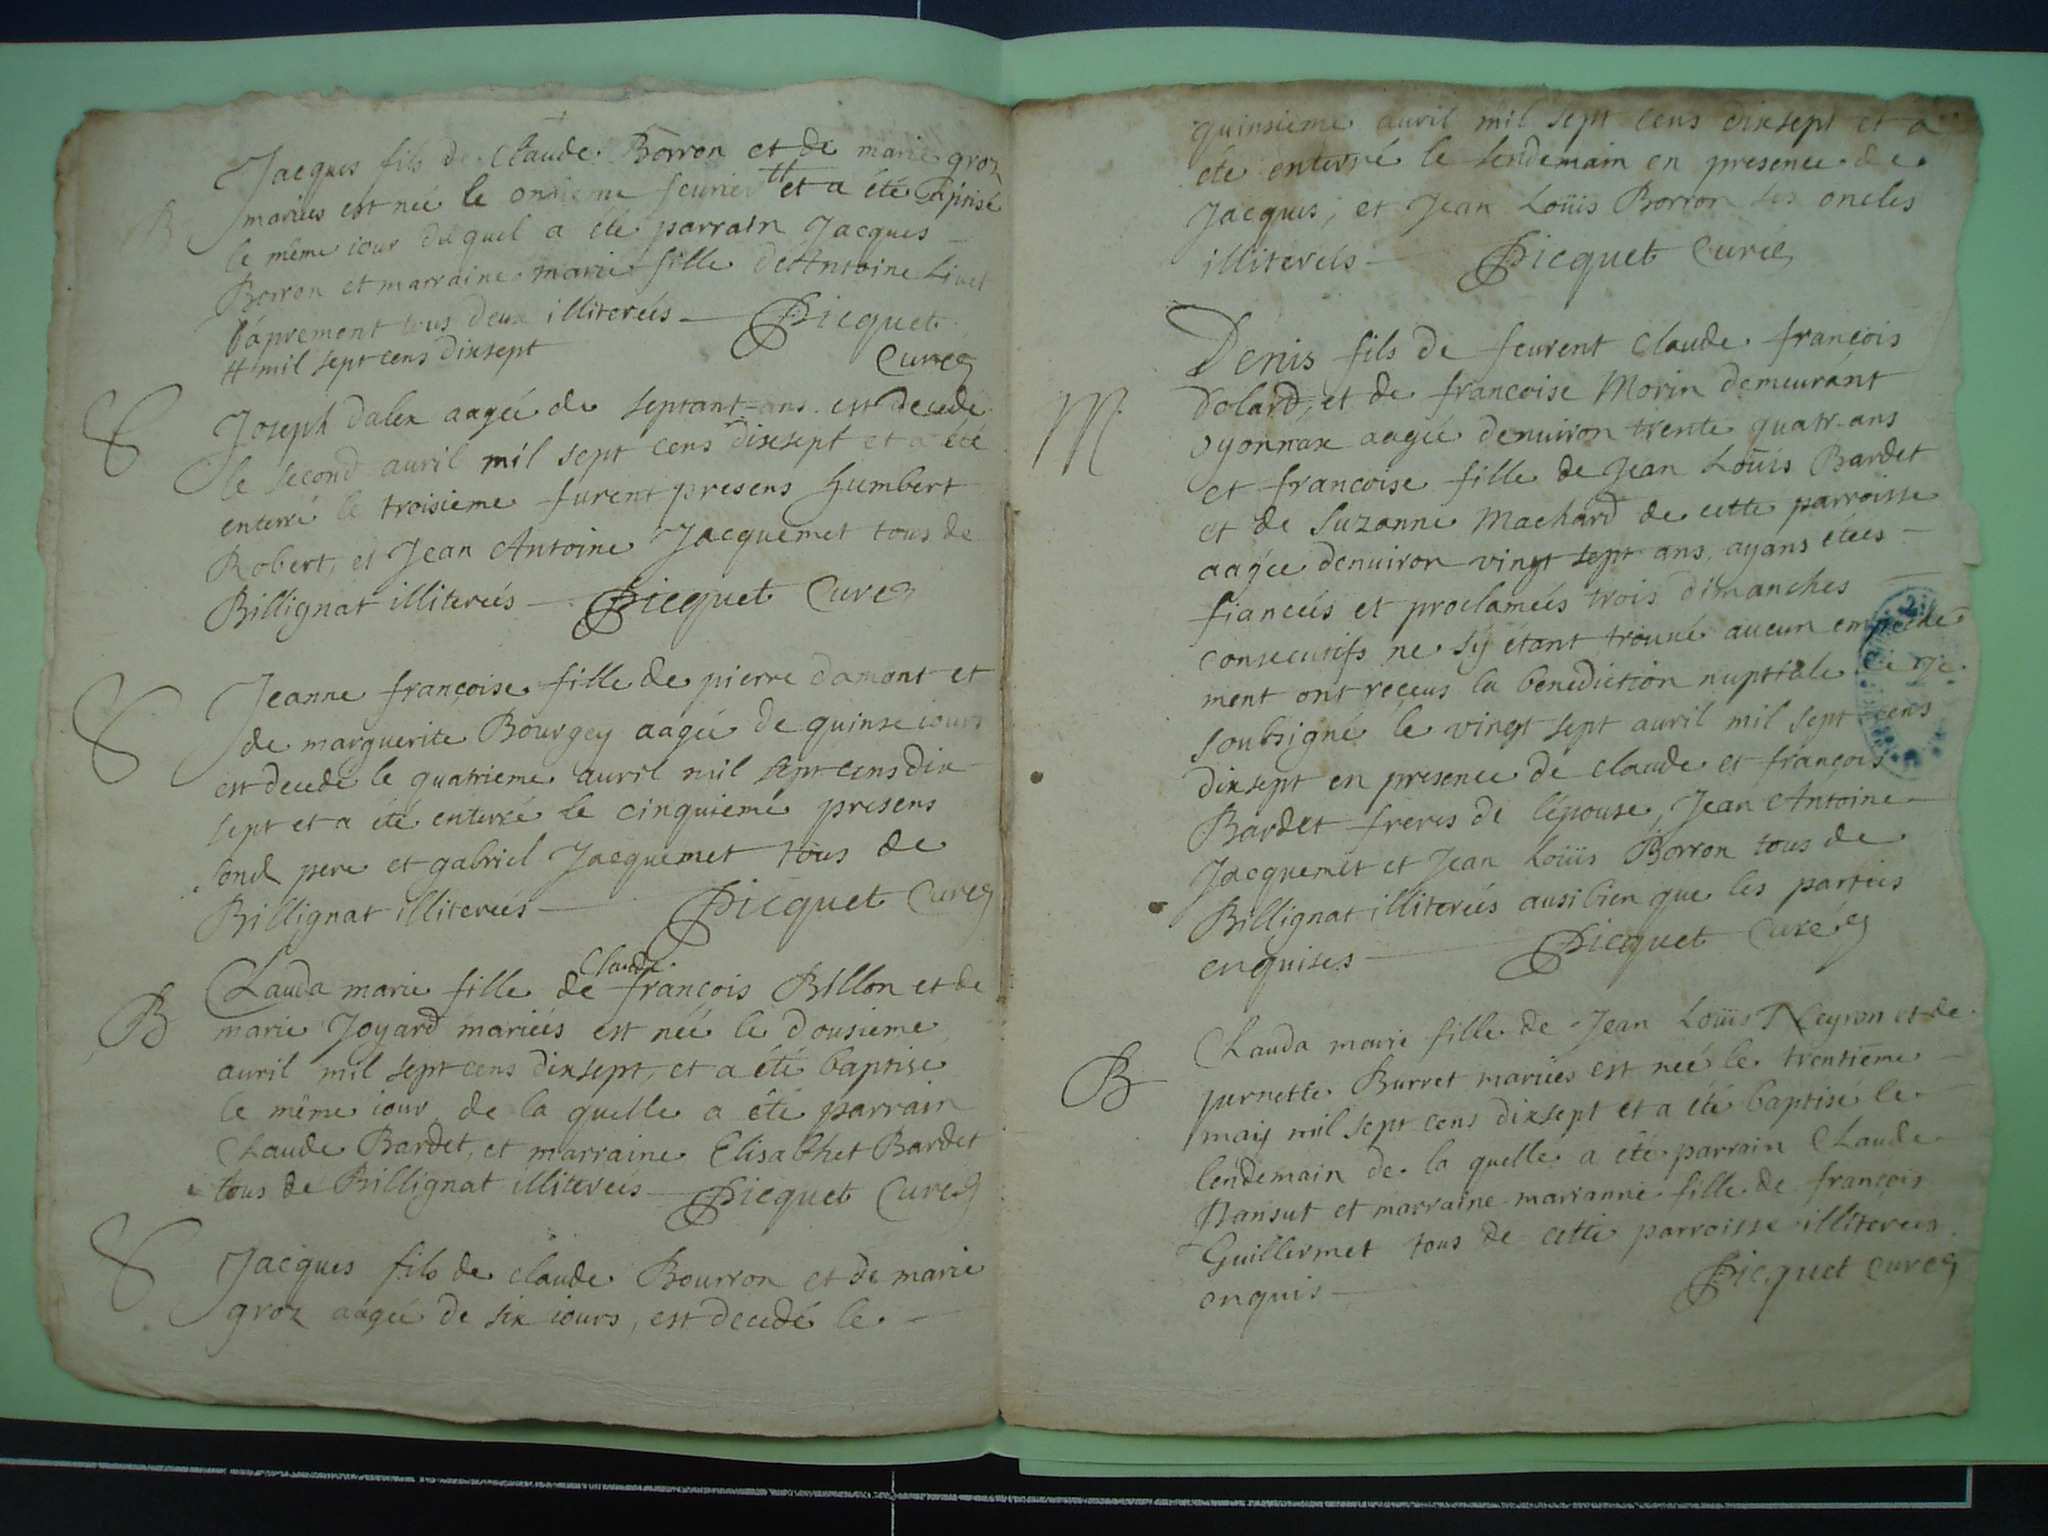 Jacques fils de Claude Borron et de marie groz
B
mariees est neé le onsieme feurier # et a été baptisé
le même iour duquel a été parrain Jacques
Borron et marraine marie fille de Antoine Livet
b'aprement tous deux illitereés Picquet
# mil sept cens dixsept Cureé
S
Joseph dalex aageé de septant-ans est decede
le second auril mil sept cens dixsept et a été
enterré le troisieme furent presens humbert
Robert, et Jean Antoine Jacquemet tous de
Billignat illitereés Picquet Cure
S
Jeanne françoise fille de pierre damont et
de marguerite Bourgey aageé de quinse iours
est decede le quatrieme auril mil sept cens dix
sept et a été enterré le cinquieme presens
sond pere et gabriel Jacquemet tous de
Billignat illitereés Picquet Cure
Claude
Clauda marie fille de françois Billon et de
B
marie Joyard marieés est neé le dousieme
auril mil sept cens dixsept, et a été baptise
le même iour de la quelle a été parrain
Claude Bardet, et marraine Elisabhet Bardet
tous de Billignat illitereés Picquet Cure
S
Jacques fils de claude Bourron et de marie
groz aageé de six iours, est decedé le
quinsieme auril mil sept cens dixsept et a
été enterré le lendemain en presence de
Jacques, et Jean Loüis Borron ses oncles
illitereés Picquet Cureé
Denis fils de feurent claude françois
M
dolard, et de francoise Morin demeurant
oyonnax aageé denuiron trente quatr-ans
et francoise fille de Jean Loüis Bardet
et de Suzanne Machard de cette parroisse
aageé denuiron vingt sept ans, ayans éteés
fianceés et proclameés trois dimanches
consecutifs ne sÿ étant trouué aucun empeche
ment ont receus la benediction nuptiale de me
soubsigné le vingt sept auril mil sept cens
dixsept en presence de claude et françois
Bardet freres de l'épouse, Jean Antoine
Jacquemet et Jean Loüis Borron tous de
Billignat illitereés ausi bien que les parties
enquises Picquet Curé
Clauda marie fille de Jean Loüis Neyron et de
B
pernette Burret marieés est neé le trentieme
maij mil sept cens dixsept et a été baptisé le
lendemain de la quelle a été parrain Claude
Pansut et marraine marianne fille de françois
Guillermet tous de cette parroisse illitereés
enquis Picquet cure